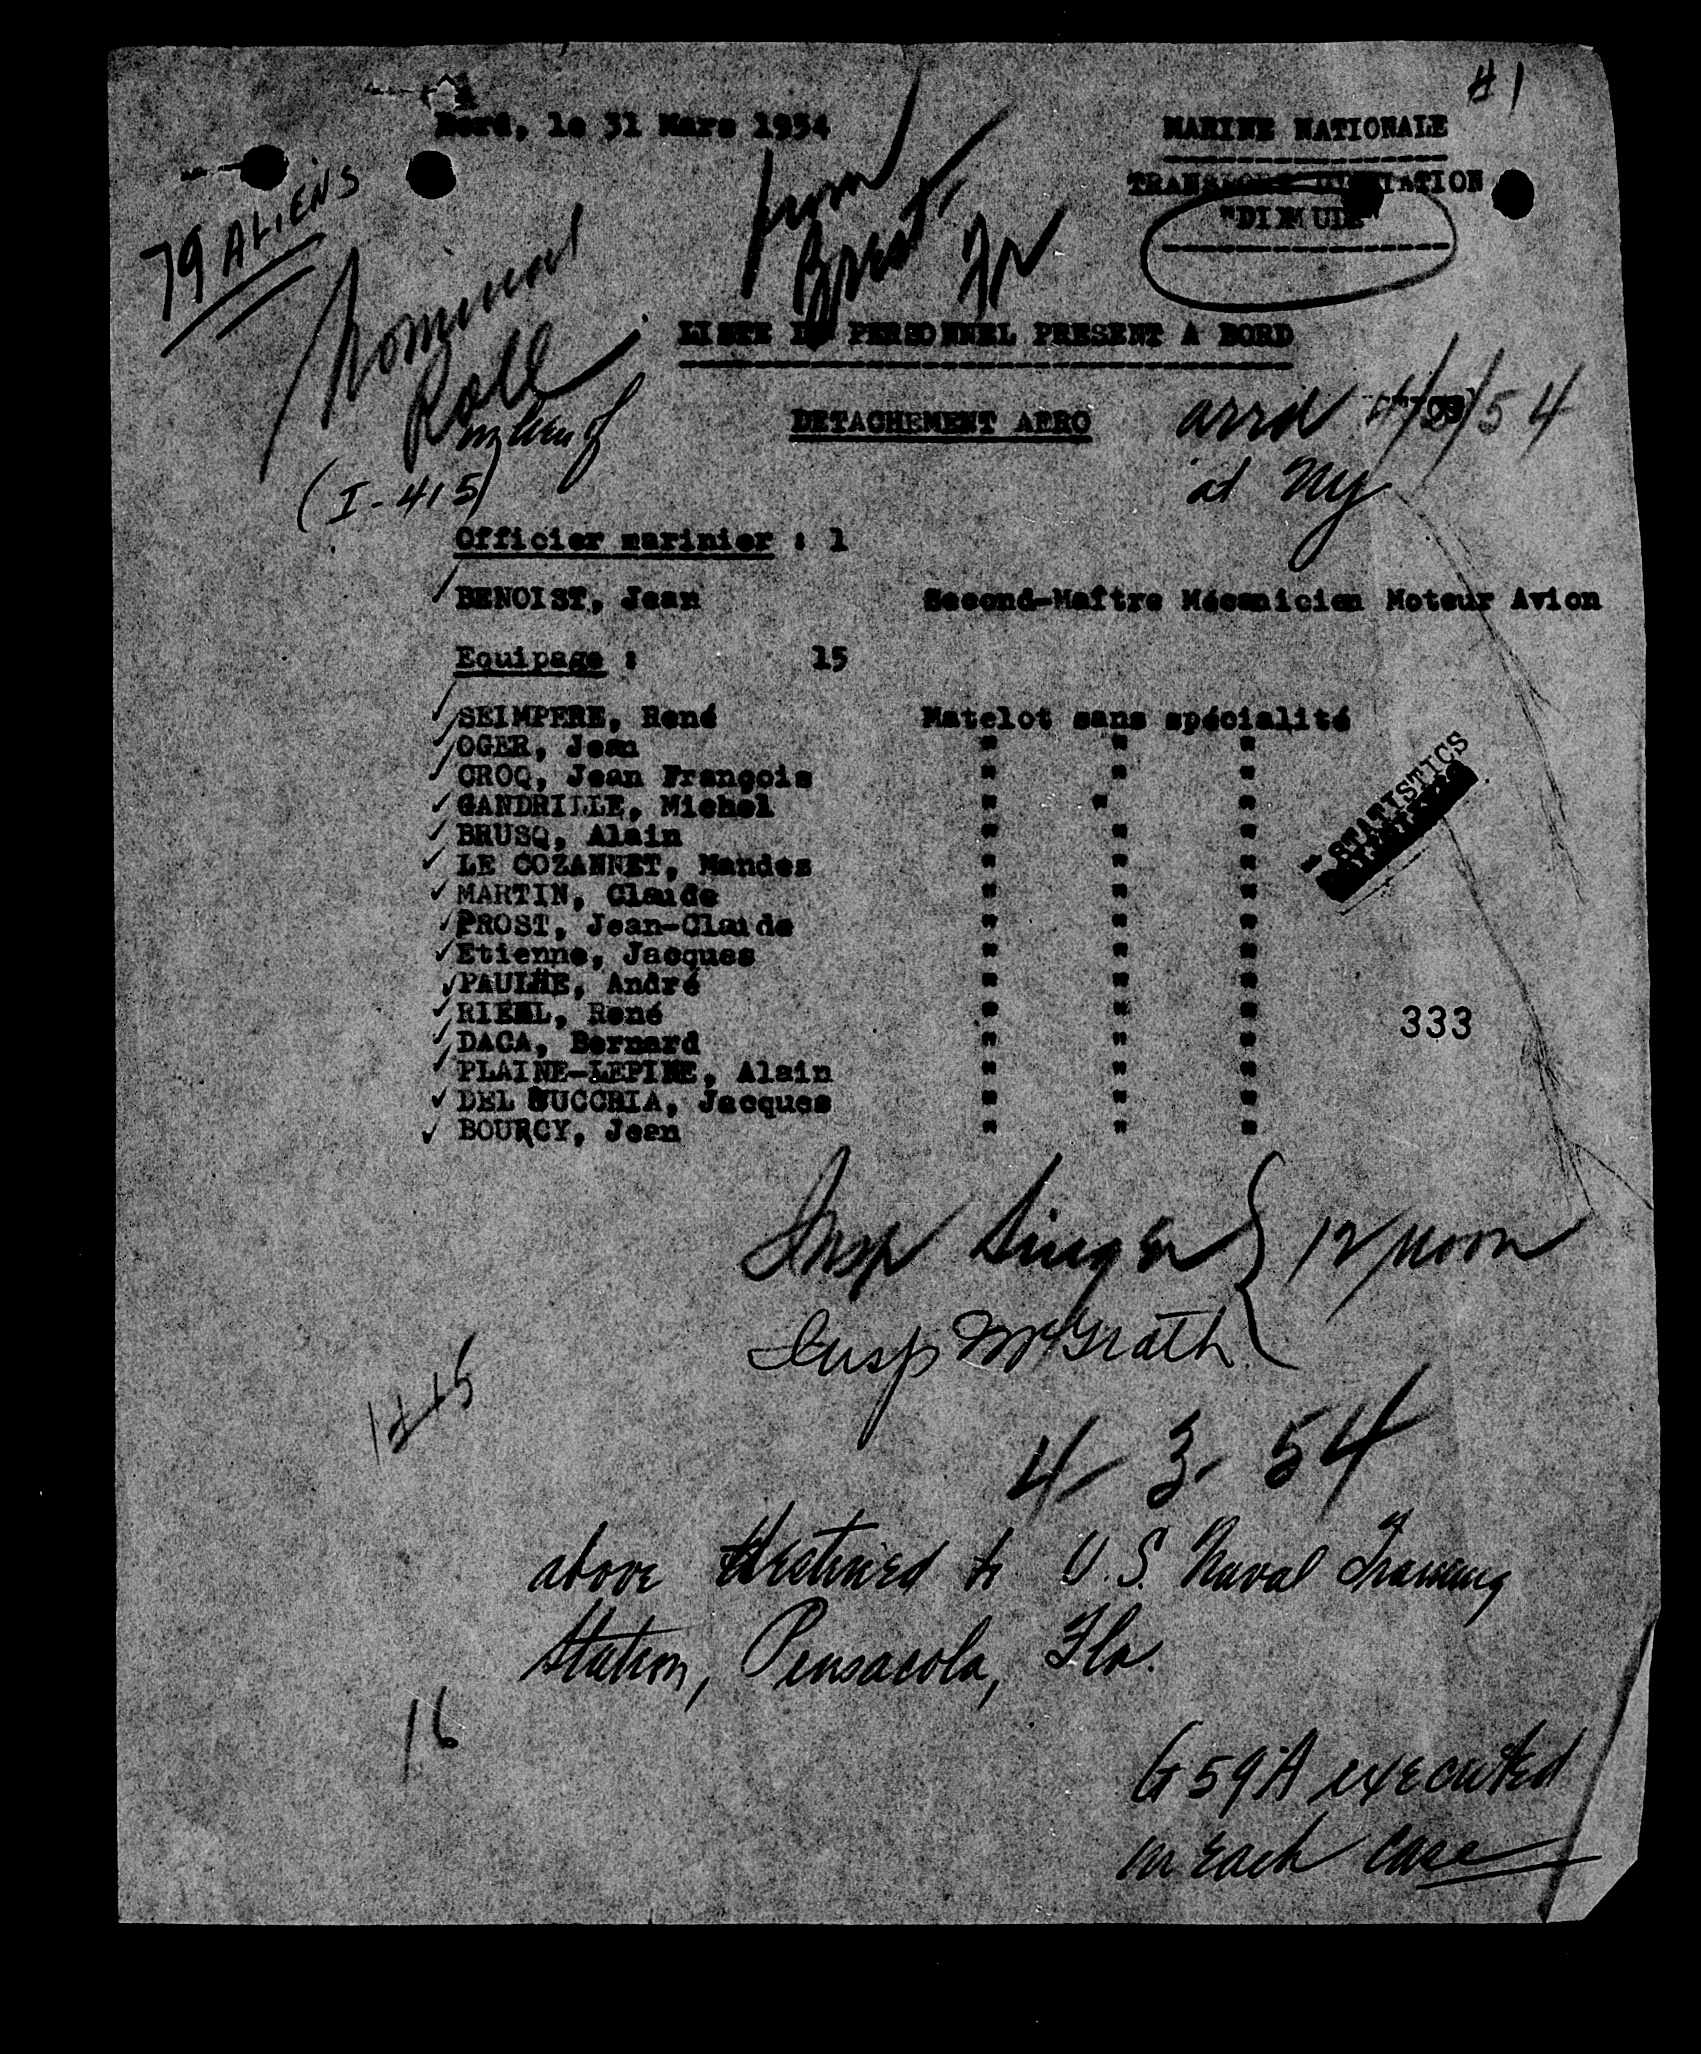 # 1
Bord, le 31 Mars 1954
MARINE NATIONALE
TRANSPORT D'AVIATION
"DIXMUDE"
79 ALIENS
from
Brest, Fr
Nominal
Roll
in lieu of
(I-415)
LISTE DU PERSONNEL PRESENT A BORD
DETACHEMENT AERO
arrd 4/3/54
at NY
Officier marinier : 1
BENOIST, Jean Second-Maître Mécanicien Moteur Avion
Equipage : 15
SEIMPERE, René Matelot sans spécialité
OGER, Jean " " "
CROQ, Jean François " " "
GANDRILLE, Michel " " "
BRUSQ, Alain " " "
LE COZANNET, Mandes " " "
MARTIN, Claude " " "
PROST, Jean-Claude " " "
Etienne, Jacques " " "
PAULHE, André " " "
RIEHL, René " " "
DACA, Bernard " " "
PLAINE-LEPINE, Alain " " "
DEL SUCCHIA, Jacques " " "
BOURCY, Jean " " "
STATISTICS
333
Insp Singer } 12/noon
Insp McGrath
4-3-54
above destined to U.S. Naval Training
Station, Pensacola, Fla.
16
G59A executed
in each case